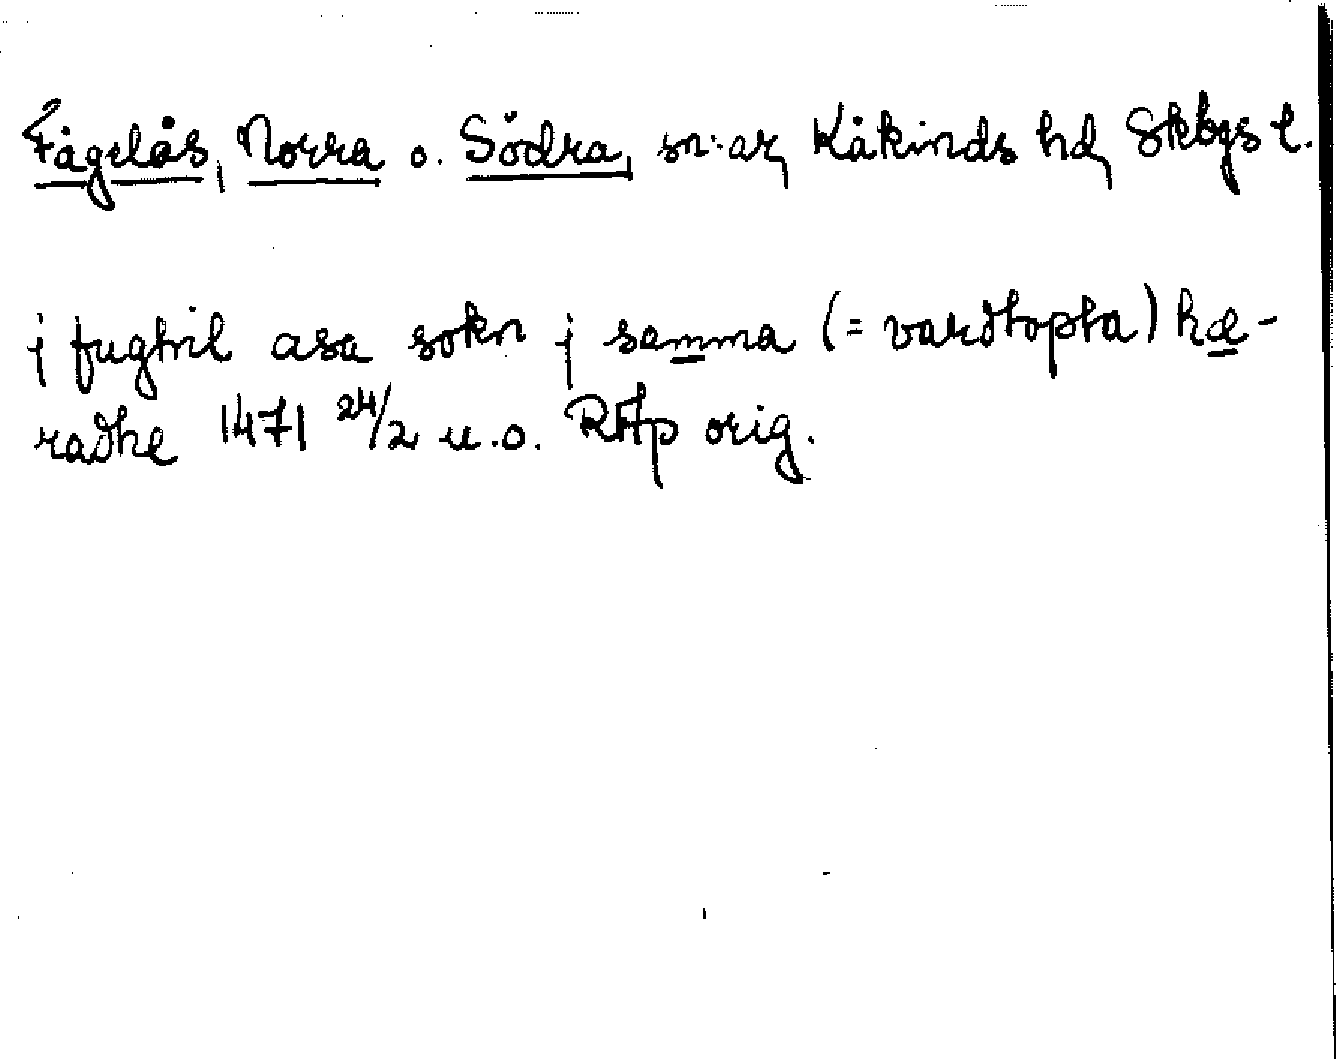 Fågelås, Norra o. Södra, sn:ar, Kåkinds hd, Skbgs l.
j fughil asa sokn j samma (= vardtopta) hæ-
radhe 1471 24/2 u.o. RAp orig.